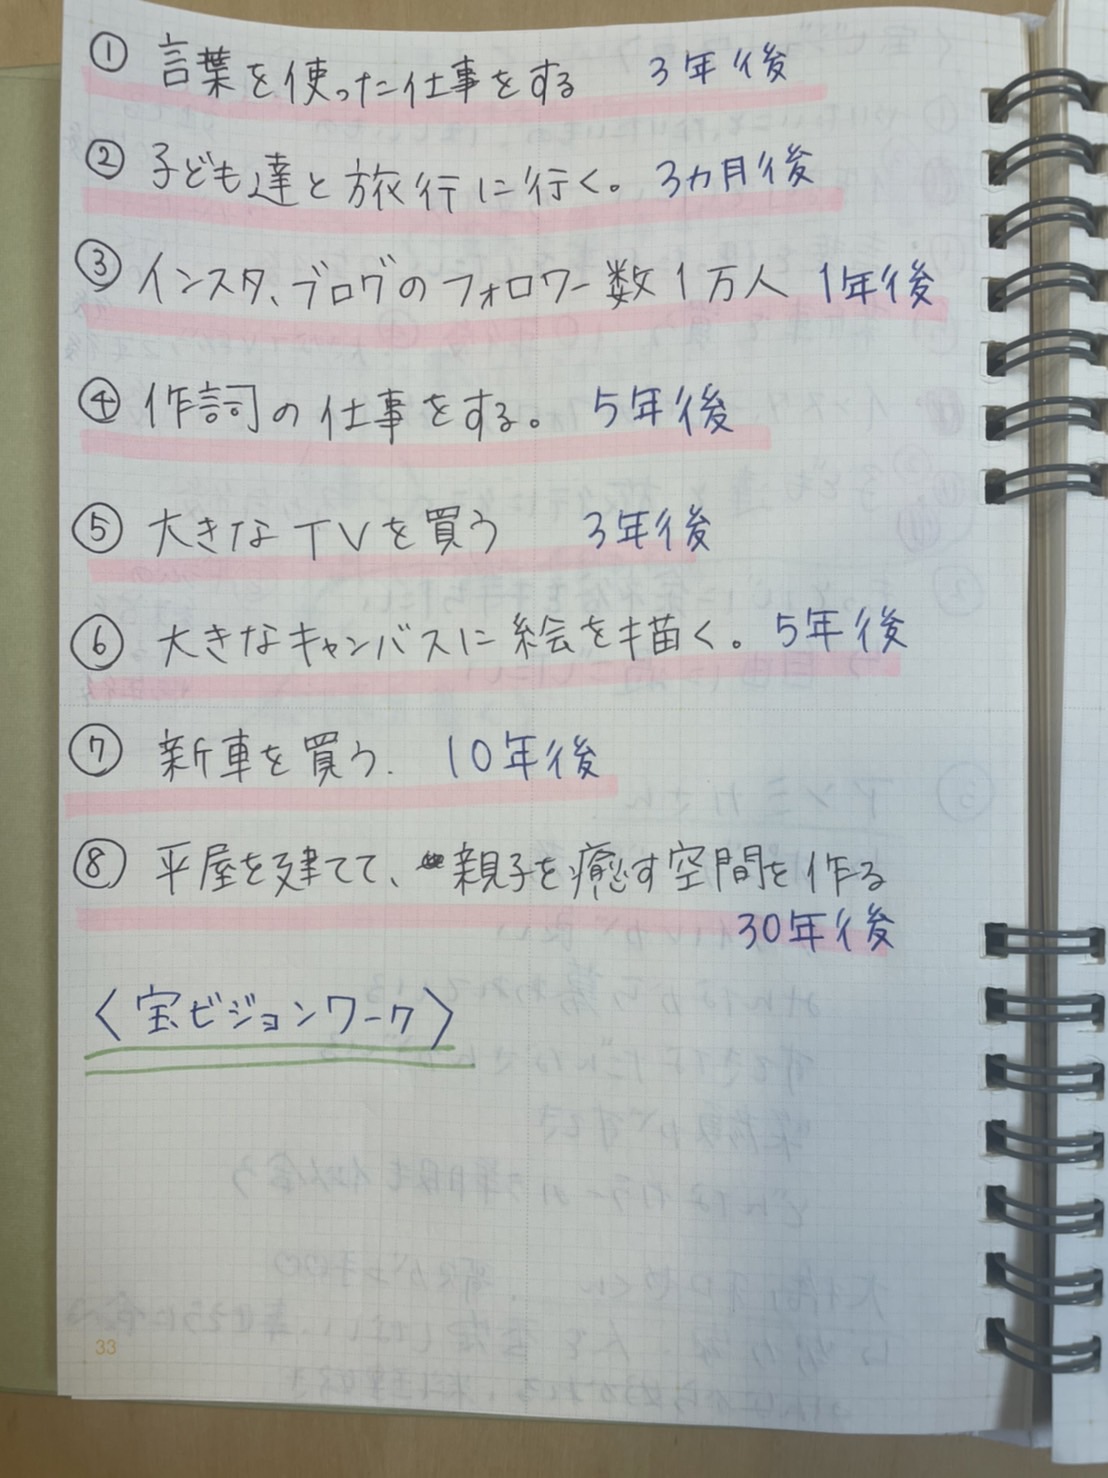 ① 言葉を使った仕事をする 3年後
② 子ども達と旅行に行く。 3ヵ月後
③ インスタ、ブログのフォロワー数1万人 1年後
④ 作詞の仕事をする。 5年後
⑤ 大きなTVを買う 3年後
⑥ 大きなキャンバスに絵を描く。 5年後
⑦ 新車を買う. 10年後
⑧ 平屋を建てて、親子を癒す空間を作る
30年後
〈宝ビジョンワーク〉
33